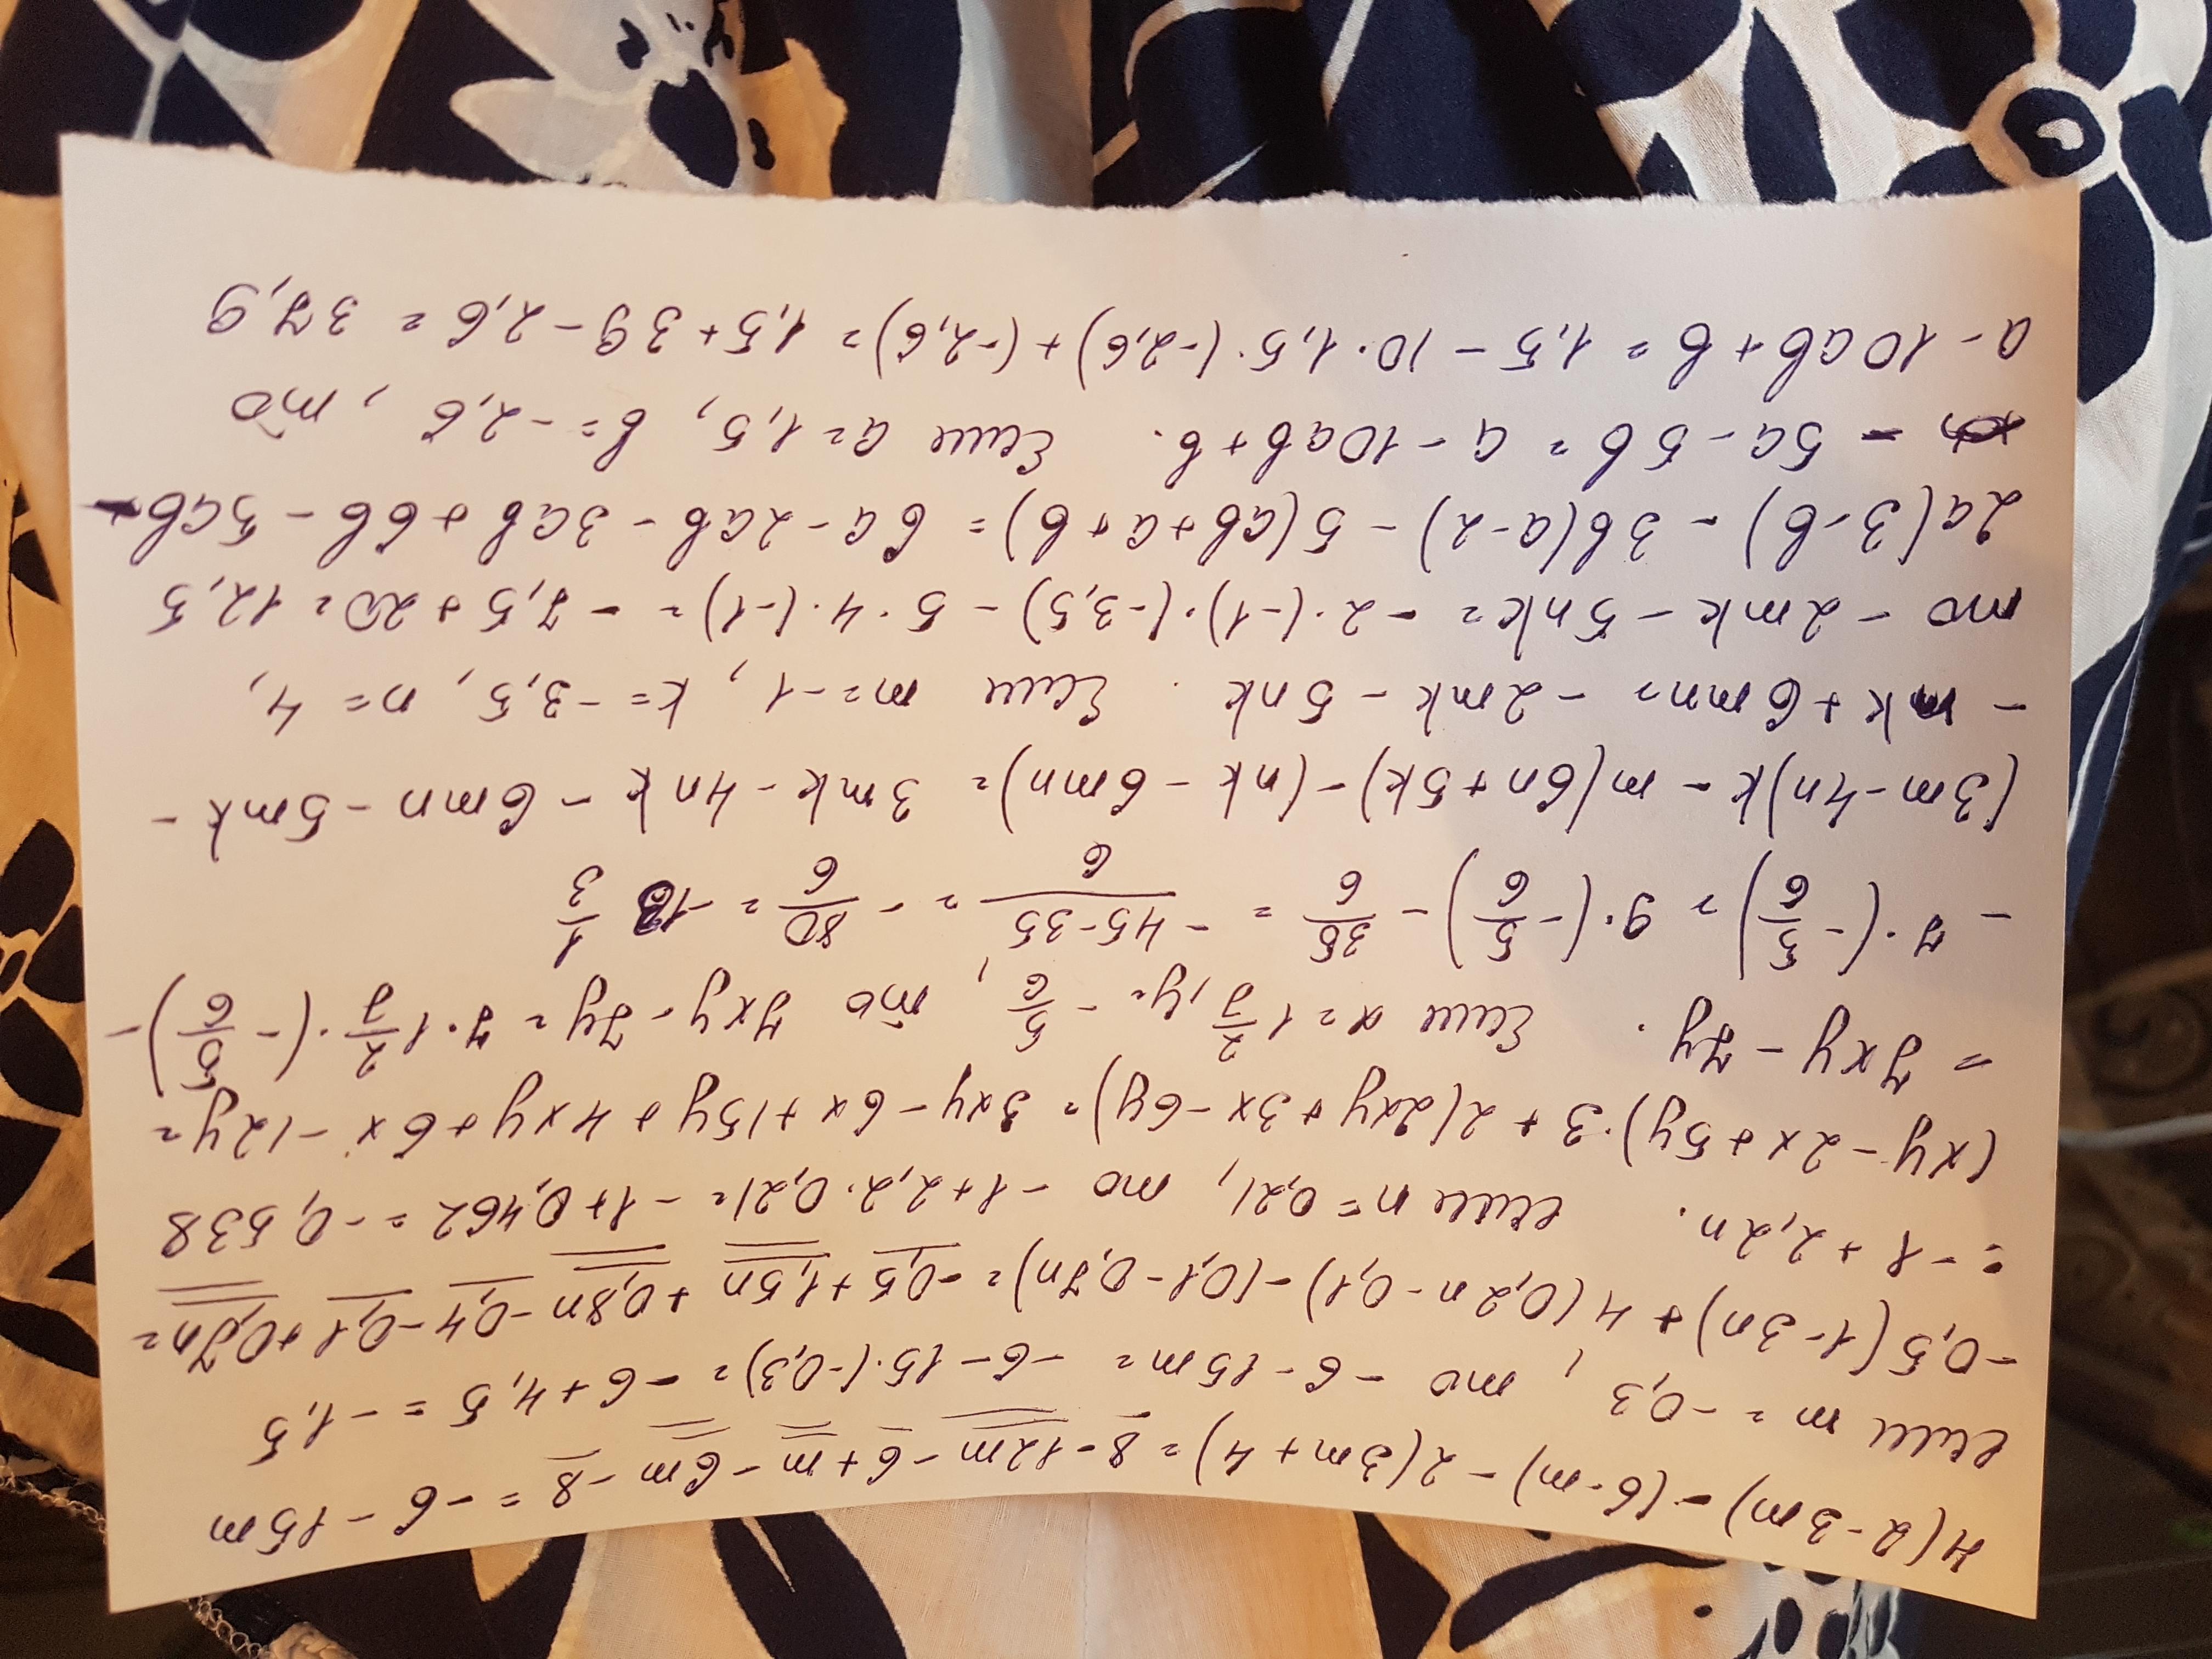 4(2-3m)-(6-m)-2(3m+4)=8-12m-6+m-6m-8=-6-15m
если m=-0,3, то -6-15m=-6-15·(-0,3)=-6+4,5=-1,5
-0,5(1-3n)+4(0,2n-0,1)-(0,1-0,7n)=-0,5+1,5n+0,8n-0,4-0,1+0,7n=
=-1+2,2n. если n=0,21, то -1+2,2·0,21=-1+0,462=-0,538
(xy-2x+5y)·3+2(2xy+3x-6y)=3xy-6x+15y+4xy+6x-12y=
=7xy-7y. Если x=1 2/7, y=-5/6, то 7xy-7y=7·1 2/7·(-5/6)-
-7·(-5/6)=9·(-5/6)-35/6=(-45-35)/6=-80/6=-13 1/3
(3m-4n)k-m(6n+5k)-(nk-6mn)=3mk-4nk-6mn-5mk-
-nk+6mn=-2mk-5nk. Если m=-1, k=-3,5, n=4,
то -2mk-5nk=-2·(-1)·(-3,5)-5·4·(-1)=-7,5+20=12,5
2a(3-b)-3b(a-2)-5(ab+a+b)=6a-2ab-3ab+6b-5ab-
-5a-5b=a-10ab+b. Если a=1,5, b=-2,6, то
a-10ab+b=1,5-10·1,5·(-2,6)+(-2,6)=1,5+39-2,6=37,9